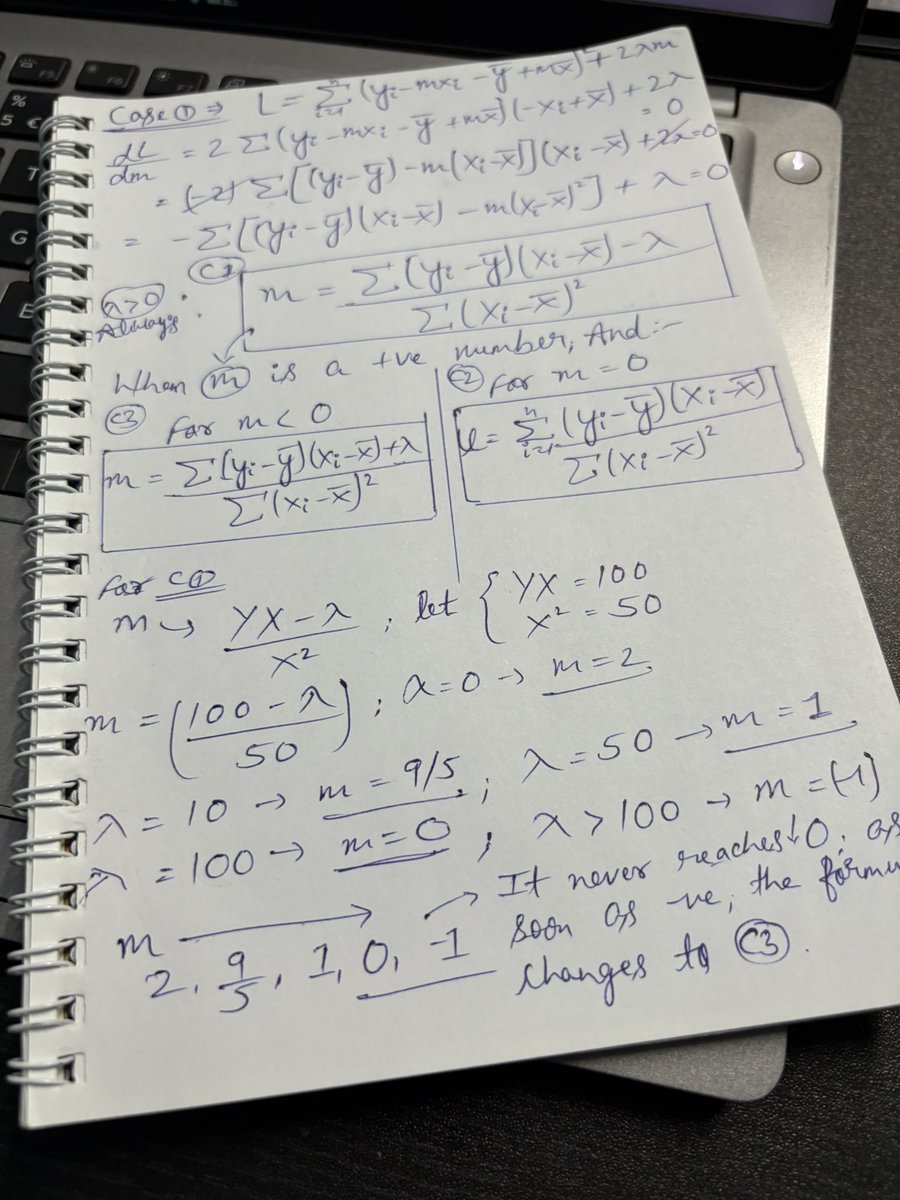 Case ① ⇒ L = Σ_{i=1}^{n} (yᵢ - mxᵢ - ȳ + mx̄)² + 2λm
dL/dm = 2 Σ (yᵢ - mxᵢ - ȳ + mx̄)(-xᵢ + x̄) + 2λ = 0
= (-2) Σ [(yᵢ - ȳ) - m(xᵢ - x̄)](xᵢ - x̄) + 2λ = 0
= - Σ [(yᵢ - ȳ)(xᵢ - x̄) - m(xᵢ - x̄)²] + λ = 0
C1
λ>0 Always : m = Σ(yᵢ - ȳ)(xᵢ - x̄) - λ / Σ(xᵢ - x̄)²
When m is a +ve number, And :-
C3 for m < 0
m = Σ(yᵢ - ȳ)(xᵢ - x̄) + λ / Σ(xᵢ - x̄)²
C2 for m = 0
= Σ_{i=1}^{n} (yᵢ - ȳ)(xᵢ - x̄) / Σ(xᵢ - x̄)²
for C①
m → YX - λ / X² ; let { YX = 100
X² = 50
m = (100 - λ / 50) ; λ = 0 → m = 2
λ = 10 → m = 9/5 ; λ = 50 → m = 1
λ = 100 → m = 0 ; λ > 100 → m = (-1)
m → → It never reaches ↓ 0, as
2, 9/5, 1, 0, -1 soon as -ve, the formu
changes to C3.
F5
F6
F7
%
5 €
T
G